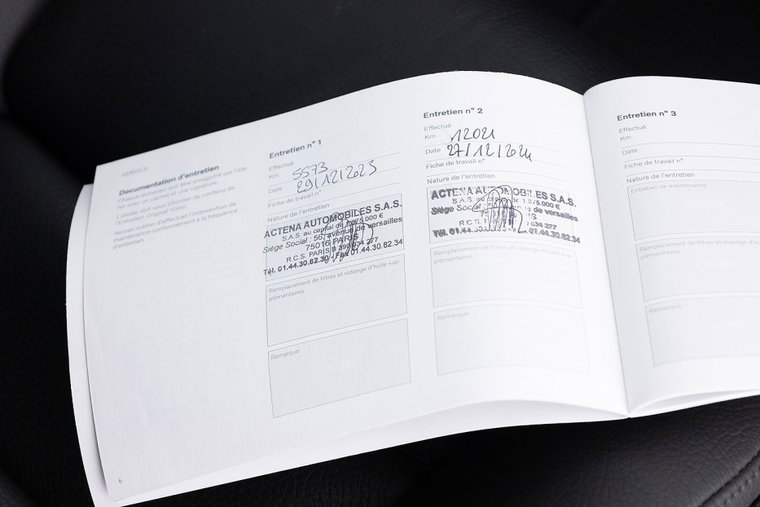 SERVICE
Documentation d'entretien
Chaque entretien doit être mentionné par l'ate-
lier avec un cachet et une signature.
d'entretien Original Volvo.
Ne pas oublier d'effectuer l'intervention de
maintenance conformément à la fréquence
d'entretien.
6
Entretien n° 1
Effectué
Km 5573
Date 29/12/2023
Fiche de travail n°
Nature de l'entretien
ACTENA AUTOMOBILES S.A.S.
S.A.S. au capital de 1.875.000 €
Siège Social : 56, avenue de versailles
75016 PARIS
R.C.S. PARIS B
Tél. 01.44.30.82.30 - Fax 01.44.30.82.34
Remplacement de filtres et vidange d'huile sup-
plémentaires
Remarque
Entretien n° 2
Effectué
Km 12021
Date 27/12/2024
Fiche de travail n°
Nature de l'entretien
ACTENA AUTOMOBILES S.A.S.
S.A.S. au capital de 1.875.000 €
Siège Social de versailles
Tél. 01.44.30.82.34
Remplacement de filtres et vidange d'huile sup-
plémentaires
Remarque
Entretien n° 3
Effectué
Km
Date
Fiche de travail n°
Nature de l'entretien
Entretien de maintenance
Remplacement de filtres et vidange
plémentaires
Remarque